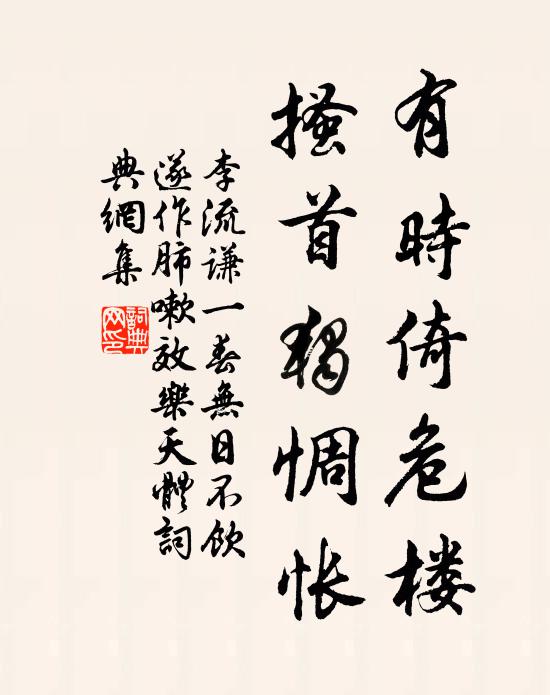 有時倚危楼
搔首獨惆怅
李流謙一春無日不飲
遂作肺嗽效樂天體詞
典網集
詞典
网印